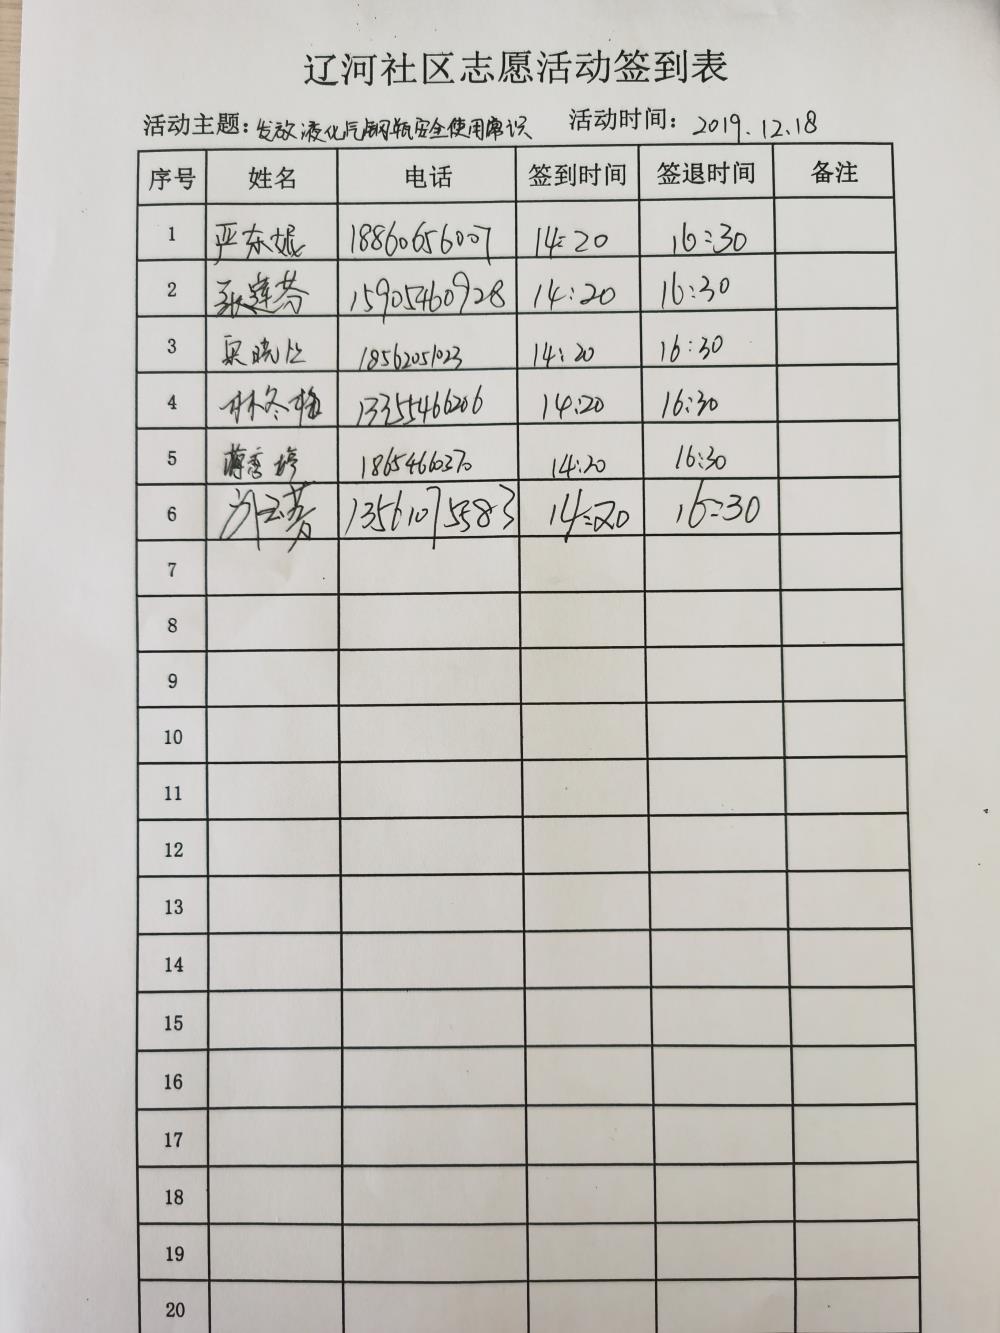 辽河社区志愿活动签到表
活动主题：发放液化气钢瓶安全使用常识 活动时间：2019.12.18
序号 姓名 电话 签到时间 签退时间 备注
1 严东妮 18860656007 14:20 16:30
2 张莲芬 15905460928 14:20 16:30
3 晓 18562051023 14:20 16:30
4 林冬梅 13355466206 14:20 16:30
5 蒋秀婷 18654660370 14:20 16:30
6 13561075583 14:20 16:30
7
8
9
10
11
12
13
14
15
16
17
18
19
20